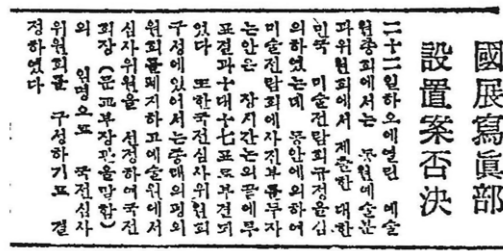 國展寫眞部
設置案否決
二十二일하오에열린 예술
원총회에서는 동원예술분
과위원회에서 제출한 대한
민국 미술전람회규정을심
의하였는데 동안에의하여
미술전람회에사진부를두자
는안은 장시간논의끝에투
표결과十대十七표로부결되
었다 또한국전심사위원회
구성에있어서는종래의평의
원회를폐지하고예술원에서
심사위원을 선정하여국전
회장(문교부장관을말함)
의 임명으로 국전심사
위원회를 구성하기로 결
정하였다